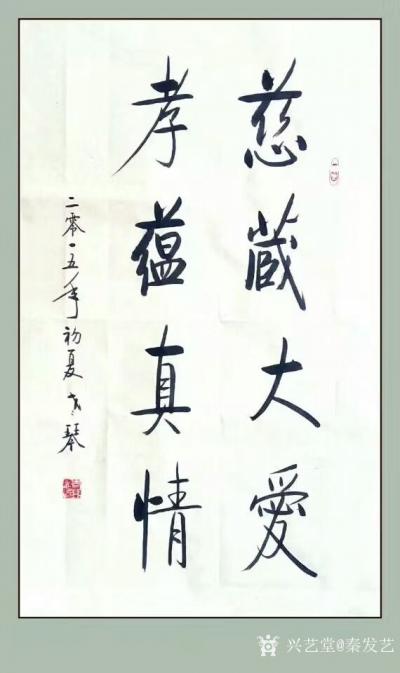 慈藏大愛
孝蘊真情
二零一五年初夏
兴艺堂@秦发艺